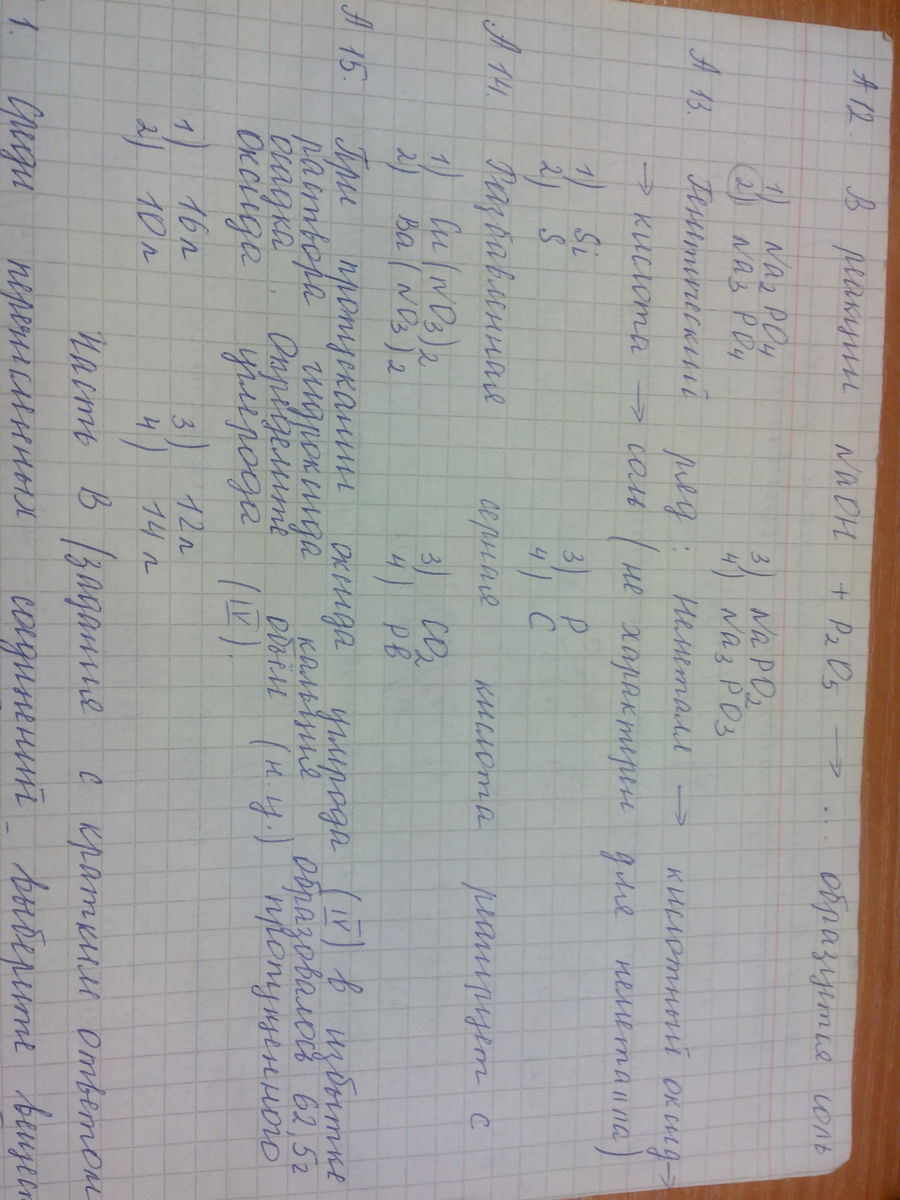 А 12. В реакции NaOH + P₂O₅ → ... образуется соль
1) Na₂PO₄ 3) NaPO₂
2) Na₃PO₄ 4) Na₃PO₃
А 13. Генетический ряд: Неметалл → кислотный оксид →
→ кислота → соль (не характерен для неметалла)
1) Si 3) P
2) S 4) C
А 14. Разбавленная серная кислота реагирует с
1) Cu(NO₃)₂ 3) CO₂
2) Ba(NO₃)₂ 4) Pb
А 15. При пропускании оксида углерода (IV) в избытке
раствора гидроксида кальция образовалось 62,5 г
осадка. Определите объём (н.у.) пропущенного
оксида углерода (IV).
1) 16 л 3) 12 л
2) 10 л 4) 14 л
Часть В (задание с кратким ответом
1. Среди перечисленных соединений - выберите вещест